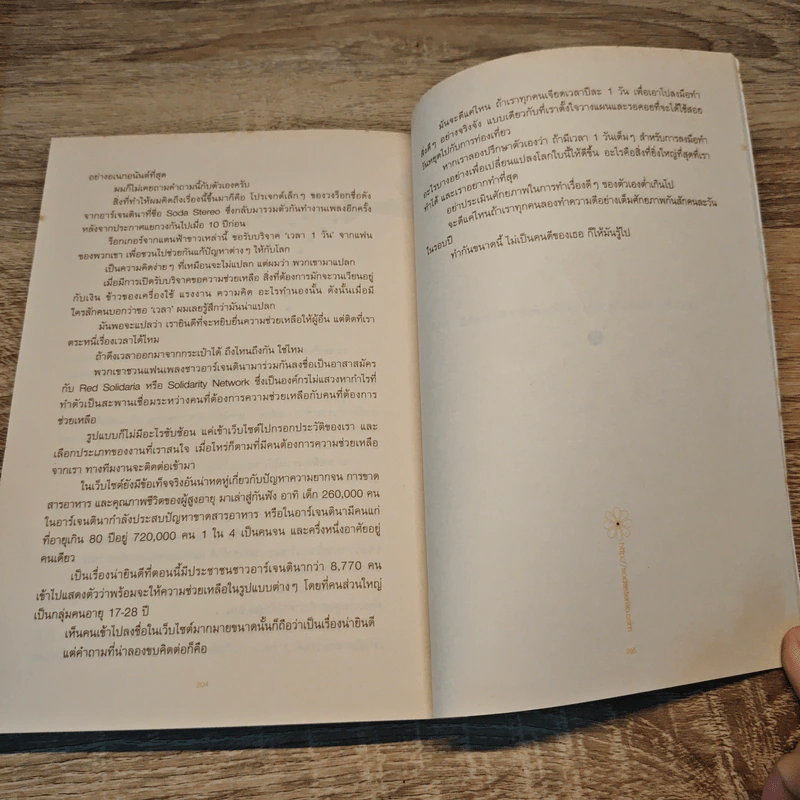 อย่างอเนกอนันต์ที่สุด
ผมก็ไม่เคยถามคำถามนี้กับตัวเองครับ
สิ่งที่ทำให้ผมคิดถึงเรื่องนี้ขึ้นมาก็คือ โปรเจกต์เล็กๆ ของวงร็อกชื่อดัง
จากอาร์เจนตินาที่ชื่อ Soda Stereo ซึ่งกลับมารวมตัวกันทำงานเพลงอีกครั้ง
หลังจากประกาศแยกวงกันไปเมื่อ 10 ปีก่อน
ร็อกเกอร์จากแดนฟ้าขาวเหล่านี้ ขอรับบริจาค 'เวลา 1 วัน' จากแฟน
ของพวกเขา เพื่อชวนไปช่วยกันแก้ปัญหาต่างๆ ให้กับโลก
เป็นความคิดง่ายๆ ที่เหมือนจะไม่แปลก แต่ผมว่า พวกเขามาแปลก
เมื่อมีการเปิดรับบริจาคขอความช่วยเหลือ สิ่งที่ต้องการมักจะวนเวียนอยู่
กับเงิน ข้าวของเครื่องใช้ แรงงาน ความคิด อะไรทำนองนั้น ดังนั้นเมื่อมี
ใครสักคนบอกว่าขอ 'เวลา' ผมเลยรู้สึกว่ามันน่าแปลก
มันพอจะแปลว่า เรายินดีที่จะหยิบยื่นความช่วยเหลือให้ผู้อื่น แต่ติดที่เรา
ตระหนี่เรื่องเวลาได้ไหม
ถ้าดึงเวลาออกมาจากกระเป๋าได้ ถึงไหนถึงกัน ใช่ไหม
พวกเขาชวนแฟนเพลงชาวอาร์เจนตินามาร่วมกันลงชื่อเป็นอาสาสมัคร
กับ Red Solidaria หรือ Solidarity Network ซึ่งเป็นองค์กรไม่แสวงหากำไรที่
ทำตัวเป็นสะพานเชื่อมระหว่างคนที่ต้องการความช่วยเหลือกับคนที่ต้องการ
ช่วยเหลือ
รูปแบบก็ไม่มีอะไรซับซ้อน แค่เข้าเว็บไซต์ไปกรอกประวัติของเรา และ
เลือกประเภทของงานที่เราสนใจ เมื่อไหร่ก็ตามที่มีคนต้องการความช่วยเหลือ
จากเรา ทางทีมงานจะติดต่อเข้ามา
ในเว็บไซต์ยังมีข้อเท็จจริงอันน่าหดหู่เกี่ยวกับปัญหาความยากจน การขาด
สารอาหาร และคุณภาพชีวิตของผู้สูงอายุ มาเล่าสู่กันฟัง อาทิ เด็ก 260,000 คน
ในอาร์เจนตินากำลังประสบปัญหาขาดสารอาหาร หรือในอาร์เจนตินามีคนแก่
ที่อายุเกิน 80 ปีอยู่ 720,000 คน 1 ใน 4 เป็นคนจน และครึ่งหนึ่งอาศัยอยู่
คนเดียว
เป็นเรื่องน่ายินดีที่ตอนนี้มีประชาชนชาวอาร์เจนตินากว่า 8,770 คน
เข้าไปแสดงตัวว่าพร้อมจะให้ความช่วยเหลือในรูปแบบต่างๆ โดยที่คนส่วนใหญ่
เป็นกลุ่มคนอายุ 17-28 ปี
เห็นคนเข้าไปลงชื่อในเว็บไซต์มากมายขนาดนั้นก็ถือว่าเป็นเรื่องน่ายินดี
แต่คำถามที่น่าลองขบคิดต่อก็คือ
204
มันจะดีแค่ไหน ถ้าเราทุกคนเจียดเวลาปีละ 1 วัน เพื่อเอาไปลงมือทำ
สิ่งดีๆ อย่างจริงจัง แบบเดียวกับที่เราตั้งใจวางแผนและรอคอยที่จะได้ใช้สอย
วันหยุดไปกับการท่องเที่ยว
หากเราลองปรึกษาตัวเองว่า ถ้ามีเวลา 1 วันเต็มๆ สำหรับการลงมือทำ
อะไรบางอย่างเพื่อเปลี่ยนแปลงโลกใบนี้ให้ดีขึ้น อะไรคือสิ่งที่ยิ่งใหญ่ที่สุดที่เรา
ทำได้ และเราอยากทำที่สุด
อย่าประเมินศักยภาพในการทำเรื่องดีๆ ของตัวเองต่ำเกินไป
จะดีแค่ไหนถ้าเราทุกคนลองทำความดีอย่างเต็มศักยภาพกันสักคนละวัน
ในรอบปี
ทำกันขนาดนี้ ไม่เป็นคนดีของเธอ ก็ให้มันรู้ไป
205